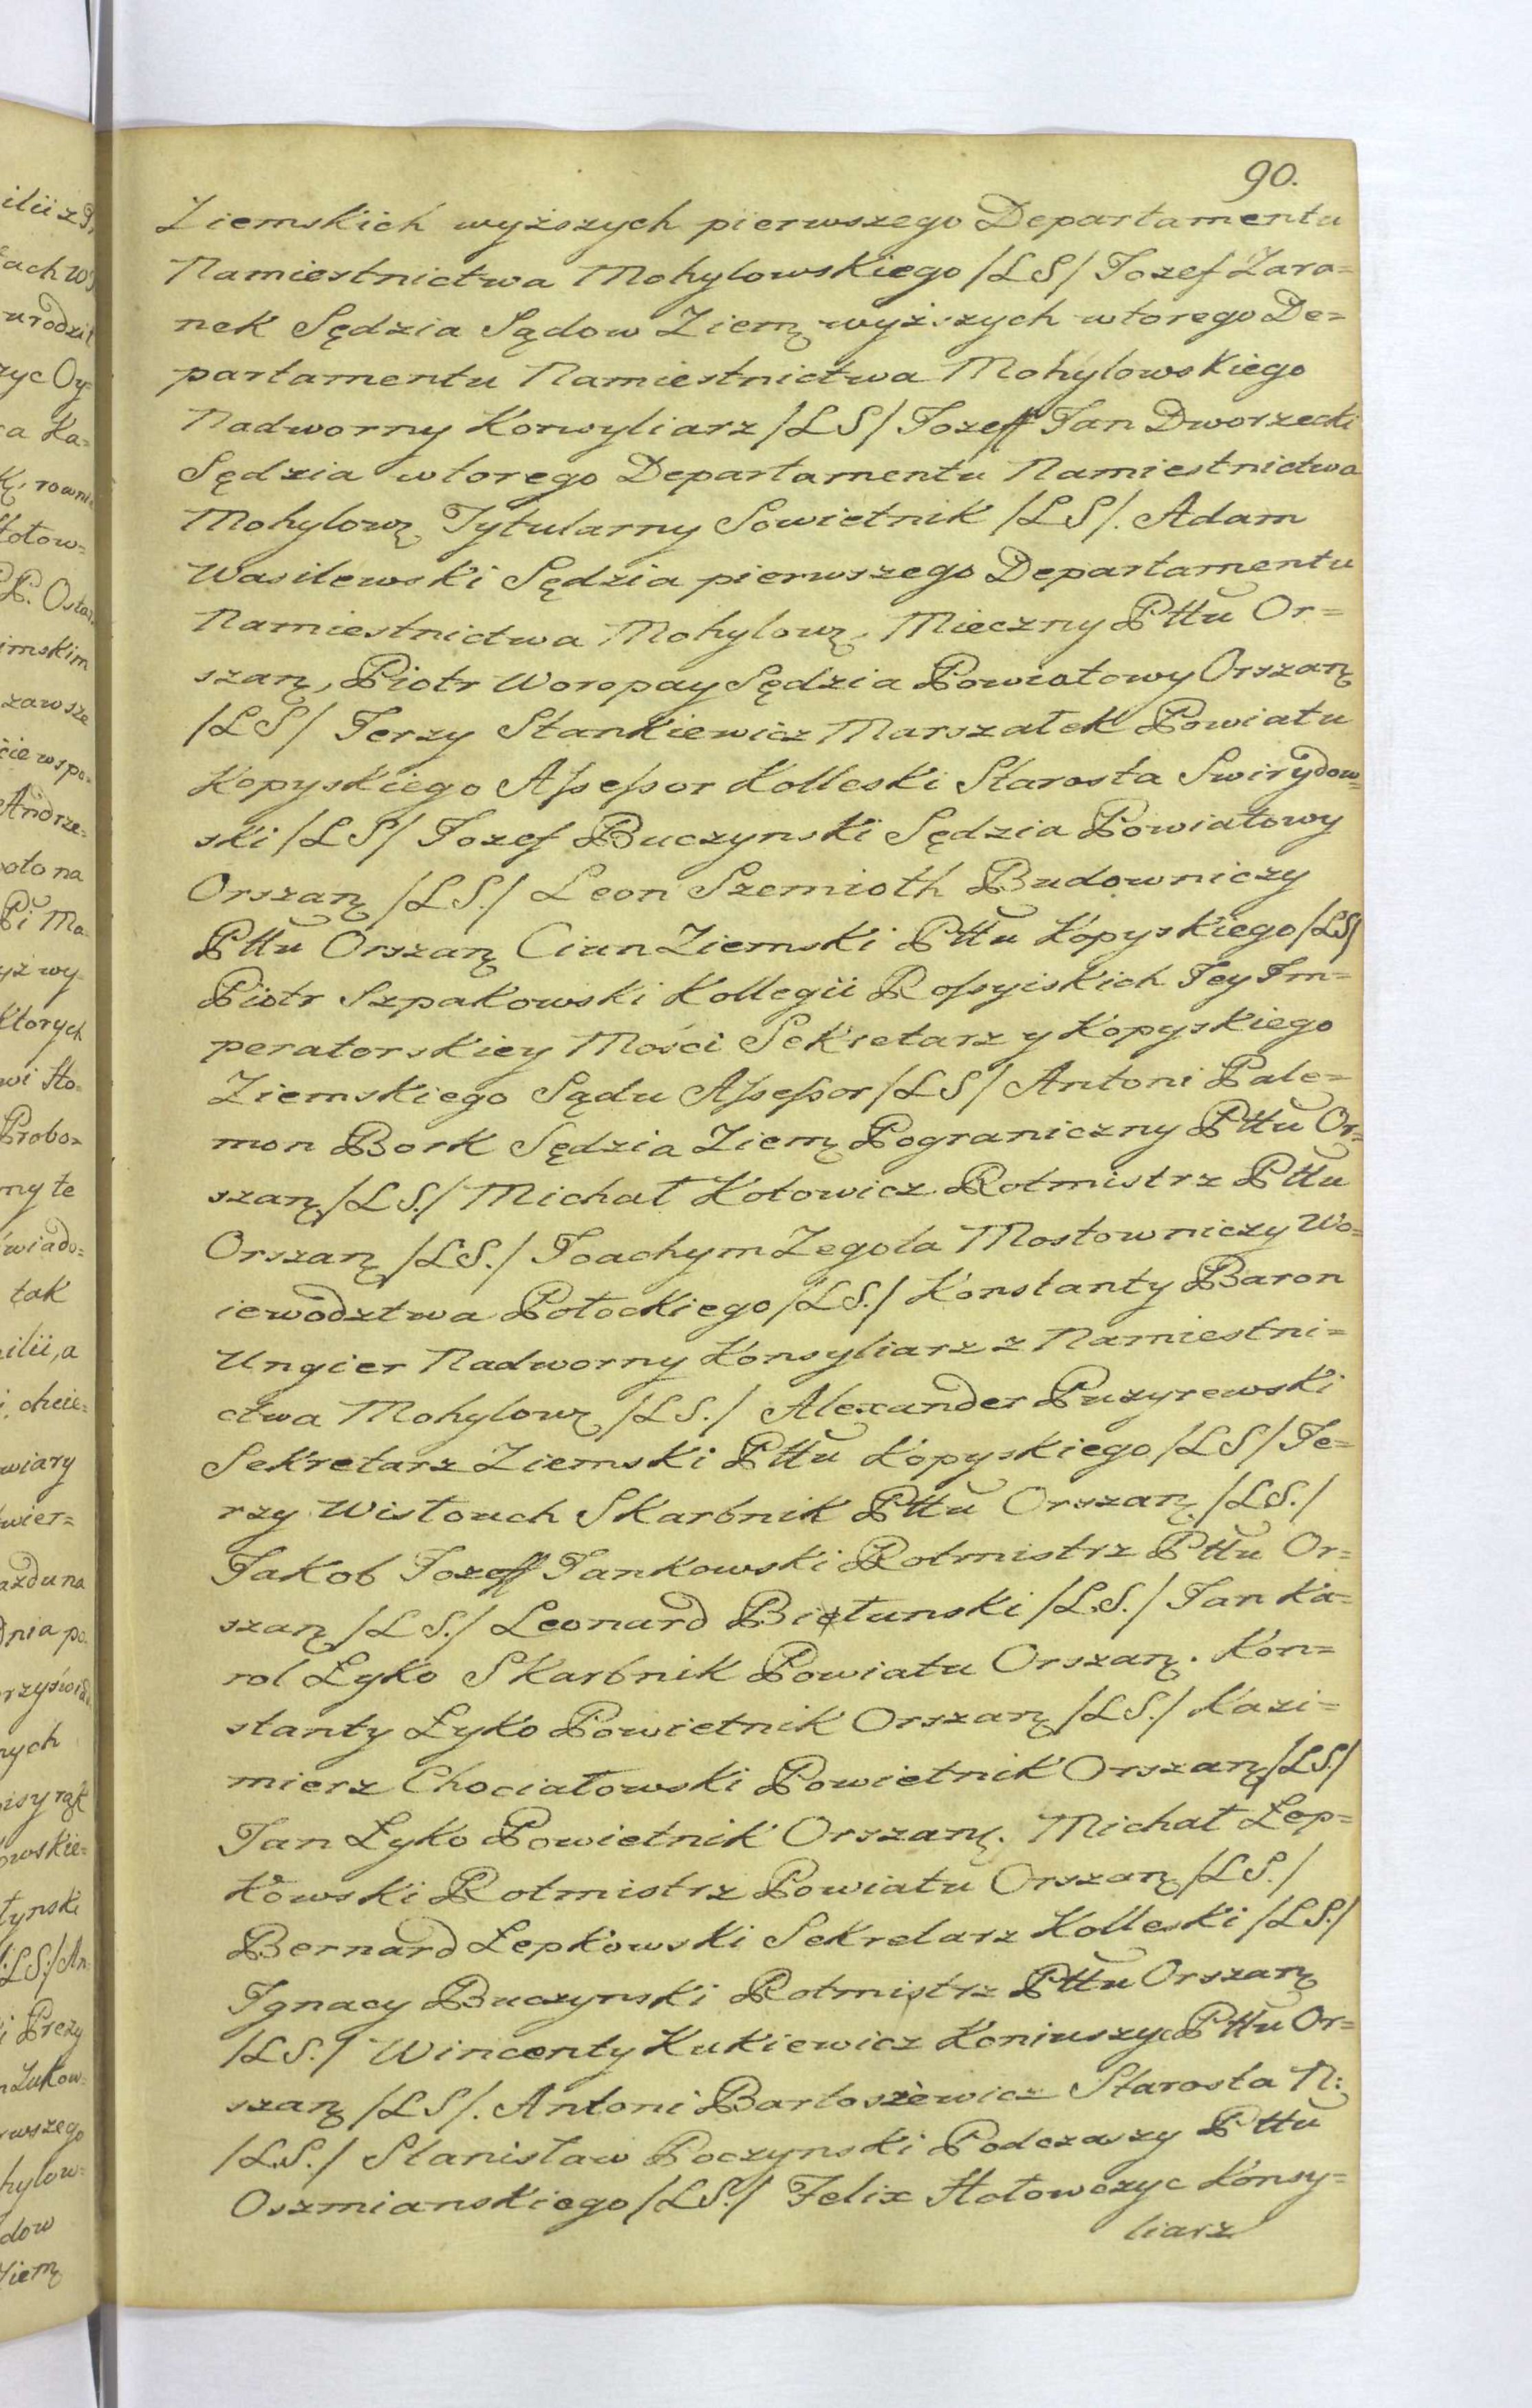 90.
Ziemskich wyższych pierwszego Departamentu
Namiestnictwa Mohylowskiego /LS/ Jozef Zara=
nek Sędzia Sądow Ziemꝫ wyższych wtorego De=
partamentu Namiestnictwa Mohylowskiego
Nadworny Konsyliarz /LS/ Jozeff Jan Dworzecki
Sędzia wtorego Departamentu Namiestnictwa
Mohylowꝫ Tytularny Sowietnik /LS/. Adam
Wasilewski Sędzia pierwszego Departamentu
Namiestnictwa Mohylowꝫ. Mieczny Pttu Or=
szanꝫ, Piotr Woropay Sędzia Powiatowy Orszanꝫ
/LS/ Jerzy Stankiewicz Marszałek Powiatu
Kopyskiego Aſseſsor Kolleski Starosta Swirydow=
ski /LS/ Jozef Buczynski Sędzia Powiatowy
Orszanꝫ /LS./ Leon Szemioth Budowniczy
Pttu Orszanꝫ Ciun Ziemski Pttu Kopyskiego /LS/
Piotr Szpakowski Kollegii Roſsyiskich Jey Im=
peratorskiey Mości Sekretarz y Kopyskiego
Ziemskiego Sądu Aſseſsor /LS/ Antoni Pale=
mon Bork Sędzia Ziemꝫ Pograniczny Pttu Or=
szanꝫ /LS./ Michał Kotowicz Rotmistrz Pttu
Orszanꝫ /LS./ Joachym Zegota Mostowniczy Wo=
iewodztwa Połockiego /LS./ Konstanty Baron
Ungier Nadworny Konsyliarz z Namiestni=
ctwa Mohylowꝫ /LS./ Alexander Puzyrewski
Sekretarz Ziemski Pttu Kopyskiego /LS/ Je=
rzy Wistouch Skarbnik Pttu Orszanꝫ /LS./
Jakob Jozeff Jankowski Rotmistrz Pttu Or=
szanꝫ /LS./ Leonard Biełunski /LS./ Jan Ka=
rol Łyko Skarbnik Powiatu Orszanꝫ. Kon=
stanty Łyko Powietnik Orszanꝫ /LS./ Kazi=
mierz Chociatowski Powietnik Orszanꝫ /LS./
Jan Łyko Powietnik Orszanꝫ. Michał Łep=
kowski Rotmistrz Powiatu Orszanꝫ /LS./
Bernard Łepkowski Sekretarz Kolleski /LS./
Ignacy Buczynski Rotmistrz Pttu Orszanꝫ
/LS./ Wincenty Kukiewicz Koniuszyc Pttu Or=
szanꝫ /LS/. Antoni Bartoszewicz Starosta N:
/LS./ Stanisław Poczynski Podczaszy Pttu
Oszmianskiego /LS./ Felix Hołowczyc Konsy=
liarz